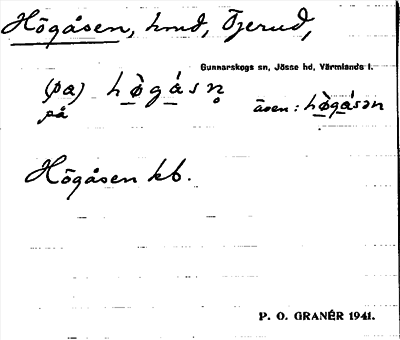 Högåsen, hmd, Tjerud,
Gunnarskogs sn, Jösse hd, Värmlands l.
(pa) hø̀gásn̥
på
åsen: hø̀gásən
Högåsen kb.
P. O. GRANÉR 1941.